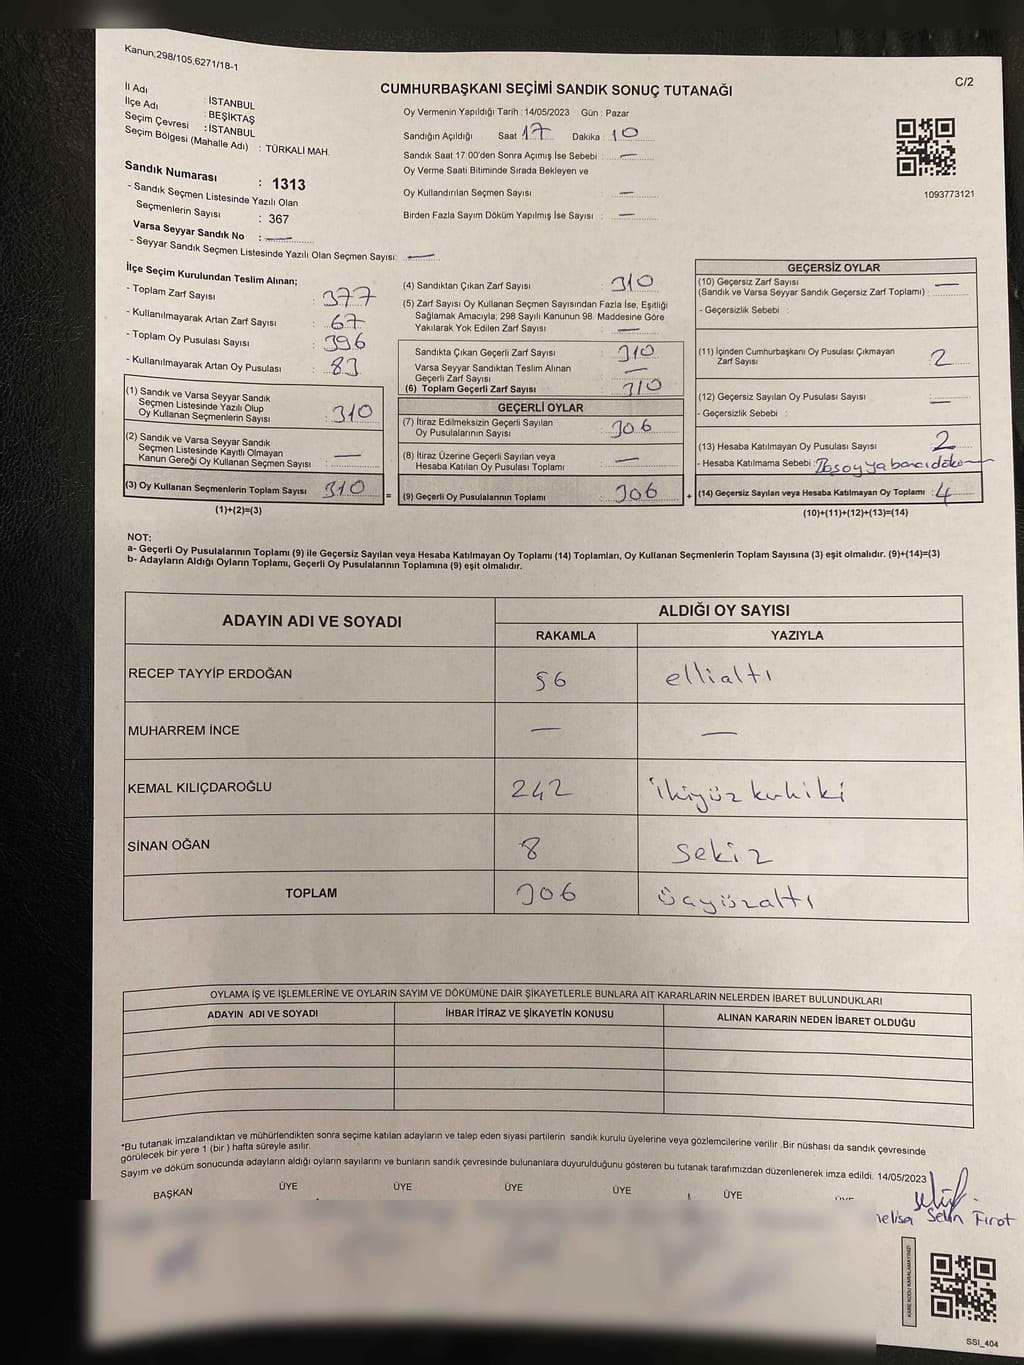 Kanun;298/105,6271/18-1
C/2
CUMHURBAŞKANI SEÇİMİ SANDIK SONUÇ TUTANAĞI
İl Adı : İSTANBUL
İlçe Adı : BEŞİKTAŞ
Seçim Çevresi : İSTANBUL
Seçim Bölgesi (Mahalle Adı) : TÜRKALİ MAH.
Sandık Numarası : 1313
- Sandık Seçmen Listesinde Yazılı Olan
Seçmenlerin Sayısı : 367
Varsa Seyyar Sandık No : —
- Seyyar Sandık Seçmen Listesinde Yazılı Olan Seçmen Sayısı: —
Oy Vermenin Yapıldığı Tarih : 14/05/2023 Gün : Pazar
Sandığın Açıldığı Saat 17 Dakika : 10
Sandık Saat 17:00'den Sonra Açımış İse Sebebi : —
Oy Verme Saati Bitiminde Sırada Bekleyen ve
Oy Kullandırılan Seçmen Sayısı : —
Birden Fazla Sayım Döküm Yapılmış İse Sayısı : —
1093773121
İlçe Seçim Kurulundan Teslim Alınan;
- Toplam Zarf Sayısı : 377
- Kullanılmayarak Artan Zarf Sayısı : 67
- Toplam Oy Pusulası Sayısı : 396
- Kullanılmayarak Artan Oy Pusulası : 83
(1) Sandık ve Varsa Seyyar Sandık
Seçmen Listesinde Yazılı Olup
Oy Kullanan Seçmenlerin Sayısı : 310
(2) Sandık ve Varsa Seyyar Sandık
Seçmen Listesinde Kayıtlı Olmayan
Kanun Gereği Oy Kullanan Seçmen Sayısı : —
(3) Oy Kullanan Seçmenlerin Toplam Sayısı : 310
(1)+(2)=(3)
=
(4) Sandıktan Çıkan Zarf Sayısı : 310
(5) Zarf Sayısı Oy Kullanan Seçmen Sayısından Fazla İse, Eşitliği
Sağlamak Amacıyla; 298 Sayılı Kanunun 98. Maddesine Göre
Yakılarak Yok Edilen Zarf Sayısı : —
Sandıkta Çıkan Geçerli Zarf Sayısı : 310
Varsa Seyyar Sandıktan Teslim Alınan
Geçerli Zarf Sayısı : —
(6) Toplam Geçerli Zarf Sayısı : 310
GEÇERLİ OYLAR
(7) İtiraz Edilmeksizin Geçerli Sayılan
Oy Pusulalarının Sayısı : 306
(8) İtiraz Üzerine Geçerli Sayılan veya
Hesaba Katılan Oy Pusulası Toplamı : —
(9) Geçerli Oy Pusulalarının Toplamı : 306
+
GEÇERSİZ OYLAR
(10) Geçersiz Zarf Sayısı
(Sandık ve Varsa Seyyar Sandık Geçersiz Zarf Toplamı) : —
- Geçersizlik Sebebi :
(11) İçinden Cumhurbaşkanı Oy Pusulası Çıkmayan
Zarf Sayısı : 2
(12) Geçersiz Sayılan Oy Pusulası Sayısı : —
- Geçersizlik Sebebi :
(13) Hesaba Katılmayan Oy Pusulası Sayısı : 2
- Hesaba Katılmama Sebebi :
(14) Geçersiz Sayılan veya Hesaba Katılmayan Oy Toplamı : 4
(10)+(11)+(12)+(13)=(14)
NOT:
a- Geçerli Oy Pusulalarının Toplamı (9) ile Geçersiz Sayılan veya Hesaba Katılmayan Oy Toplamı (14) Toplamları, Oy Kullanan Seçmenlerin Toplam Sayısına (3) eşit olmalıdır. (9)+(14)=(3)
b- Adayların Aldığı Oyların Toplamı, Geçerli Oy Pusulalarının Toplamına (9) eşit olmalıdır.
ADAYIN ADI VE SOYADI
ALDIĞI OY SAYISI
RAKAMLA YAZIYLA
RECEP TAYYİP ERDOĞAN 56 ellialtı
MUHARREM İNCE — —
KEMAL KILIÇDAROĞLU 242 ikiyüz kırkiki
SİNAN OĞAN 8 sekiz
TOPLAM 306 üçyüzaltı
OYLAMA İŞ VE İŞLEMLERİNE VE OYLARIN SAYIM VE DÖKÜMÜNE DAİR ŞİKAYETLERLE BUNLARA AİT KARARLARIN NELERDEN İBARET BULUNDUKLARI
ADAYIN ADI VE SOYADI İHBAR İTİRAZ VE ŞİKAYETİN KONUSU ALINAN KARARIN NEDEN İBARET OLDUĞU
*Bu tutanak imzalandıktan ve mühürlendikten sonra seçime katılan adayların ve talep eden siyasi partilerin sandık kurulu üyelerine veya gözlemcilerine verilir .Bir nüshası da sandık çevresinde
görülecek bir yere 1 (bir ) hafta süreyle asılır.
Sayım ve döküm sonucunda adayların aldığı oyların sayılarını ve bunların sandık çevresinde bulunanlara duyurulduğunu gösteren bu tutanak tarafımızdan düzenlenerek imza edildi. 14/05/2023
BAŞKAN ÜYE ÜYE ÜYE ÜYE ÜYE
Selin Fırat
KARE KODU KARALAMAYINIZ!
SSI_404